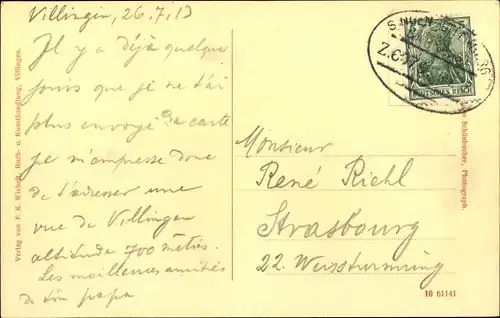 Villingen, 26.7.13
Il y a déjà quelque
jours que je ne t'ai
plus envoyé de carte
je m'empresse donc
de t'adresser une
vue de Villingen
altidude 700 mètres.
Les meilleures amitiés
de ton papa
Monsieur
René Riehl
Strasbourg
22. Weissturmring
DEUTSCHES REICH
Z.
Verlag von F. K. Wiebelt, Buch- u. Kunsthandlung, Villingen.
Schönbacher, Photograph.
10 61141